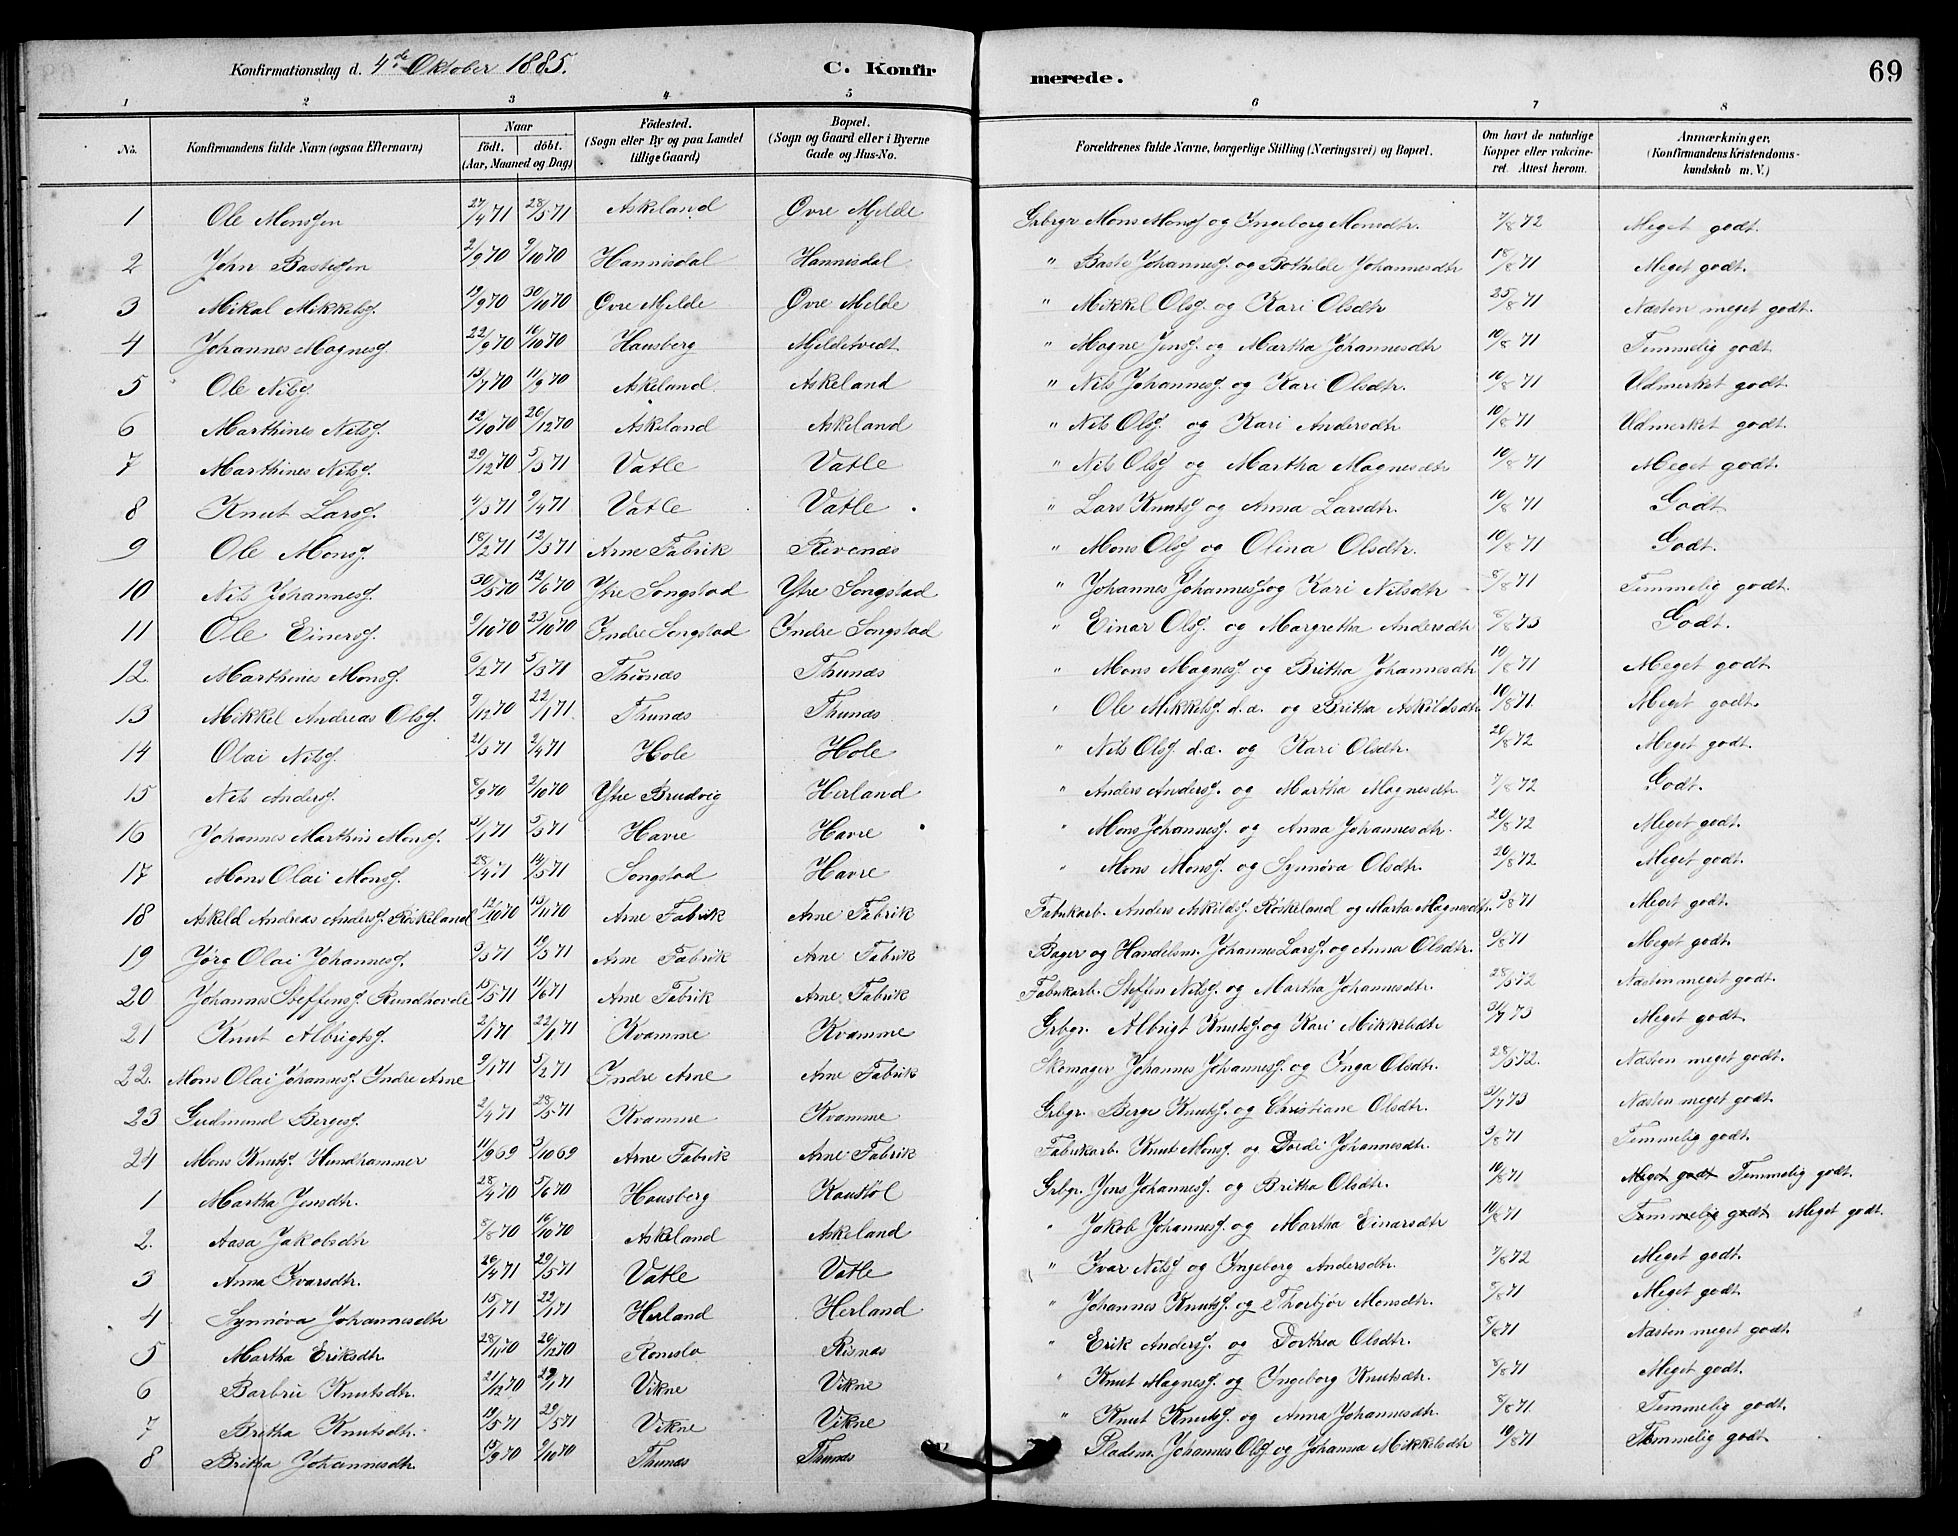 Konfirmationsdag d. 4de Oktober 1885. C. Konfirmerede. 69
1 2 3 4 5 6 7 8
No. Konfirmandens fulde Navn (ogsaa Efternavn) Naar födt. döbt. (Aar, Maaned og Dag) Födested. (Sogn eller By og paa Landet tillige Gaard) Bopæl. (Sogn og Gaard eller i Byerne Gade og Hus-No. Forældrenes fulde Navne, borgerlige Stilling (Næringsvei) og Bopæl. Om havt de naturlige Kopper eller vakcineret. Attest herom. Anmærkninger. (Konfirmandens Kristendomskundskab m. V.)
1 Ole Monssen 27/4 71 28/5 71 Askeland Øvre Mjelde Grbgr. Mons Monss. og Ingeborg Monsdtr. 7/8 72 Meget godt.
2 John Bastesen 2/9 70 9/10 70 Hannisdal Hannisdal " Baste Johanness. og Bothilde Johannesdtr 18/8 71 Meget godt.
3 Mikal Mikkels. 19/9 70 30/10 70 Øvre Mjelde Øvre Mjelde " Mikkel Ols. og Kari Olsdtr 25/8 71 Næsten meget godt.
4 Johannes Magnes. 22/9 70 16/10 70 Hausberg Mjeldetvedt " Magne Jens. og Martha Johannesdtr 10/8 71 Temmelig godt.
5 Ole Nils. 13/7 70 11/9 70 Askeland Askeland " Nils Johannes. og Kari Olsdtr. 10/8 71 Udmerket godt.
6 Marthines Nils. 12/10 70 26/12 70 Askeland Askeland " Nils Ols. og Kari Andersdtr 10/8 71 Udmerket godt.
7 Marthines Nils. 29/12 70 5/3 71 Vatle Vatle " Nils Ols. og Martha Magnesdtr 10/8 71 Meget godt.
8 Knut Lars. 4/3 71 9/4 71 Vatle Vatle " Lars Knuts. og Anna Larsdtr. 10/8 71 Godt
9 Ole Mons. 18/2 71 12/3 71 Arne Fabrik Rivenæs " Mons Ols. og Olina Olsdtr. 10/8 71 Godt.
10 Nils Johannes. 30/5 70 12/6 70 Ytre Songstad Ytre Songstad " Johannes Johannes. og Kari Nilsdtr 8/8 71 Temmelig godt.
11 Ole Einers. 9/10 70 23/10 70 Indre Songstad Indre Songstad " Einar Ols. og Margretha Andersdtr 8/8 73 Godt.
12 Marthines Mons. 6/2 71 5/3 71 Thunæs Thunæs " Mons Magnes. og Britha Johannesdtr 10/8 71 Meget godt
13 Mikkel Andreas Ols. 9/12 70 22/1 71. Thunæs Thunæs " Ole Mikkels. d.æ. og Britha Askildsdtr 10/8 71. Meget godt.
14 Olai Nils. 21/3 71 2/4 71 Hole Hole " Nils Ols. d.æ. og Kari Olsdtr. 20/8 72 Meget godt.
15 Nils Anders. 8/9 70 2/10 70 Ytre Brudvig Herland " Anders Anders. og Martha Magnesdtr. 7/8 72 Godt.
16 Johannes Marthin Mons. 3/1 71 5/3 71 Havre Havre " Mons Johannes. og Anna Johannesdtr. 20/8 72 Meget godt.
17 Mons Olai Mons. 28/4 71 14/5 71 Songstad Havre " Mons Mons. og Synnøva Olsdtr 20/8 72. Meget godt.
18 Askeld Andreas Anders. Röskeland 12/10 70 13/11 70 Arne Fabrik Arne Fabrik Fabrikarb. Anders Askilds. Röskeland og Marta Magnesdtr. 3/8 71 Meget godt.
19 Jörg Olai Johannes. 3/3 71 19/3 71 Arne Fabrik Arne Fabrik Bager og Handelsm. Johannes Lars. og Anna Olsdtr. 9/8 71 Meget godt.
20 Johannes Steffens. Rundhovde 15/5 71 11/6 71 Arne Fabrik Arne Fabrik Fabrikarb. Steffen Nils. og Martha Johannesdtr. 28/5 72 Næsten meget godt.
21 Knut Albrigts. 2/1 71 22/1 71 Kvamme Kvamme Grbgr. Albrigt Knuts. og Kari Mikkelsdtr 31/7 73 Meget godt.
22. Mons Olai Johannes. Indre Arne 9/1 71 5/2 71 Indre Arne Arne Fabrik Skomager Johannes Johannes. og Inga Olsdtr. 28/5 72. Næsten meget godt.
23 Gudmund Berges. 2/4 71 28/5 71 Kvamme Kvamme Grbgr. Berge Knuts. og Christiane Olsdtr. 31/7 73 Næsten meget godt.
24 Mons Knuts. Hundhammer 11/9 69 3/10 69 Arne Fabrik Arne Fabrik Fabrikarb. Knut Mons. og Dordi Johannesdtr. 3/8 71 Temmelig godt.
1 Martha Jensdtr. 28/4 70 5/6 70 Hausberg Kaustöl Grbgr. Jens Johannes. og Britha Olsdtr. 10/8 71 Meget godt Temmelig godt.
2. Aasa Jakobsdtr 8/8 70 16/10 70 Askeland Askeland " Jakob Johannes. og Martha Einarsdtr 10/8 71 Temmelig godt Meget godt.
3 Anna Ivarsdtr. 26/4 71 29/5 71 Vatle Vatle " Ivar Nils. og Ingeborg Andersdtr. 7/8 72 Meget godt.
4 Synnøva Johannesdtr 15/1 71 22/1 71 Herland Herland " Johannes Knuts. og Thorbjör Monsdtr. 5/8 71 Meget godt.
5 Martha Eriksdtr. 28/11 70 26/12 70 Romslo Risnæs " Erik Anders. og Dorthea Olsdtr. 8/8 71 Næsten meget godt.
6 Barbru Knutsdtr. 21/12 70 29/1 71 Vikne Vikne " Knut Magnes. og Ingeborg Knutsdtr. 8/8 71 Meget godt.
7 Britha Knutsdtr. 19/5 71 29/5 71 Vikne Vikne " Knut Knuts. og Anna Johannesdtr. 8/8 71 Temmelig godt.
8 Britha Johannesdtr. 15/9 70 9/10 70 Thunæs Thunæs Pladsm. Johannes Ols. og Johanna Mikkelsdtr 10/8 71 Temmelig godt